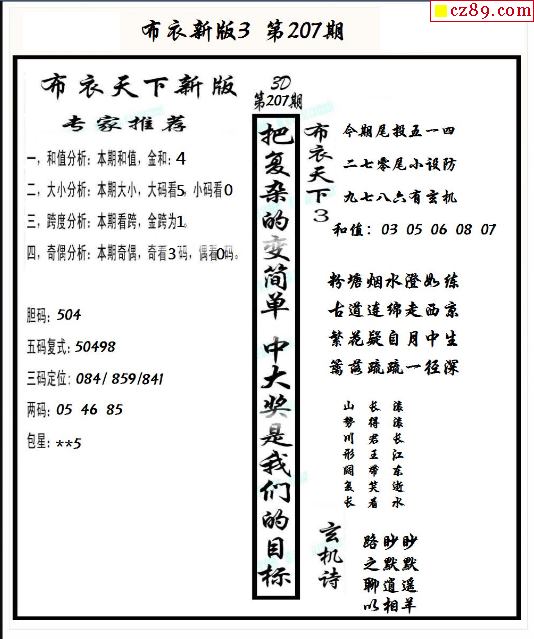 cz89.com
布衣新版3 第207期
布衣天下新版
专家推荐
一，和值分析：本期和值，金和：4
二，大小分析：本期大小，大码看5，小码看0
三，跨度分析：本期看跨，金跨为1。
四，奇偶分析：本期奇偶，奇看3码，偶看0码。
胆码：504
五码复式：50498
三码定位：084/ 859/841
两码：05 46 85
包星：**5
3D
第207期
把复杂的变简单 中大奖是我们的目标
布衣天下3
今期尾投五一四
二七零尾小设防
九七八六有玄机
和值：03 05 06 08 07
粉塘烟水澄如练
古道连绵走西京
繁花疑自月中生
篱落疏疏一径深
滚滚长江东逝水
长得君王带笑看
山势川形阔复长
玄机诗
眇默遥羊
眇默逍相
路之聊以